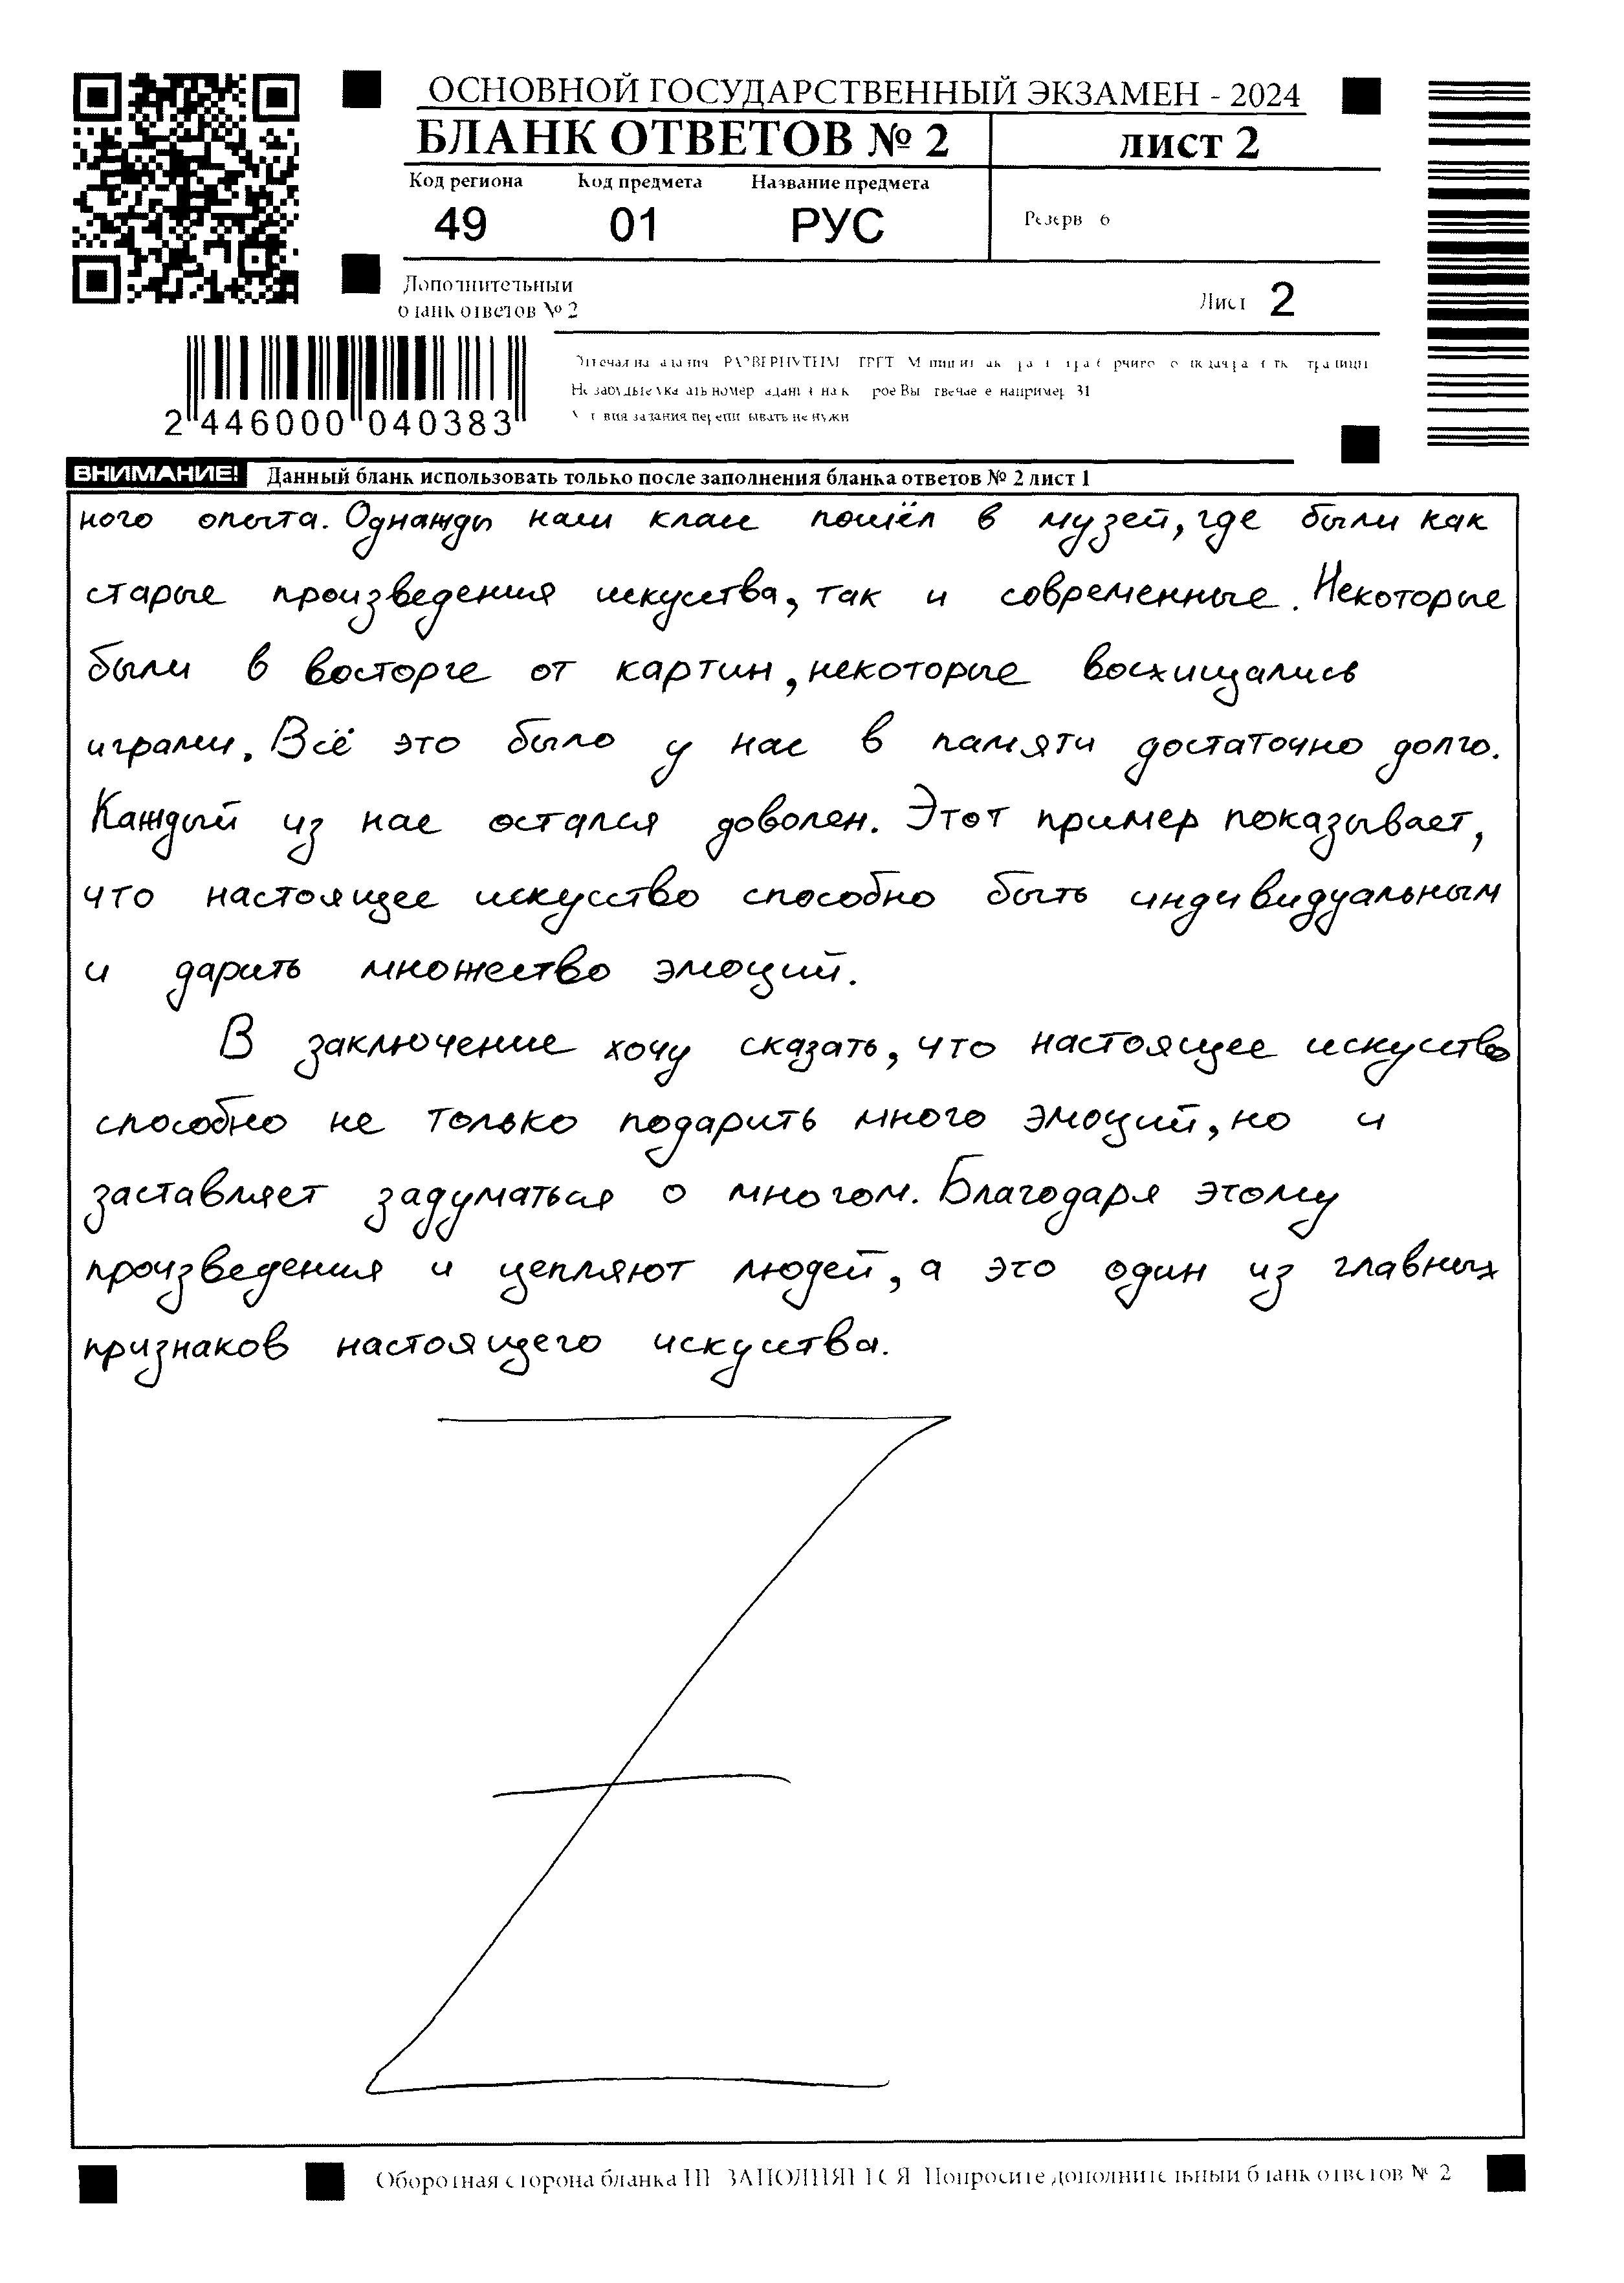 ОСНОВНОЙ ГОСУДАРСТВЕННЫЙ ЭКЗАМЕН - 2024
БЛАНК ОТВЕТОВ № 2
лист 2
Код региона Код предмета Название предмета
49 01 РУС
Резерв 6
Дополнительный
бланк ответов № 2
Лист 2
2 446000 040383
ВНИМАНИЕ! Данный бланк использовать только после заполнения бланка ответов № 2 лист 1
ного опыта. Однажды наш класс пошёл в музей, где были как
старые произведения искусства, так и современные. Некоторые
были в восторге от картин, некоторые восхищались
играми. Всё это было у нас в памяти достаточно долго.
Каждый из нас остался доволен. Этот пример показывает,
что настоящее искусство способно быть индивидуальным
и дарить множество эмоций.
В заключение хочу сказать, что настоящее искусство
способно не только подарить много эмоций, но и
заставляет задуматься о многом. Благодаря этому
произведения и цепляют людей, а это один из главных
признаков настоящего искусства.
Оборотная сторона бланка НЕ ЗАПОЛНЯЕТСЯ Попросите дополнительный бланк ответов № 2